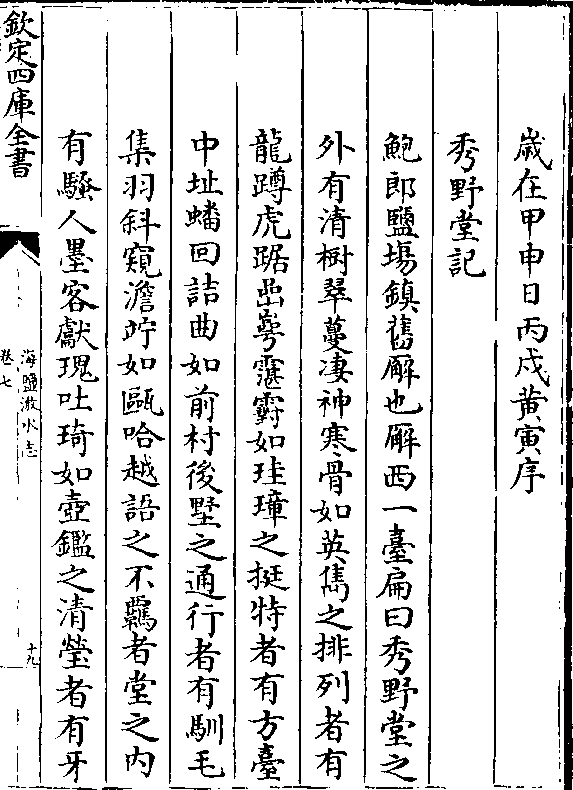 歳在甲申日丙戌黄寅序
秀野堂記
鮑郎鹽場鎮舊廨也廨西一臺扁曰秀野堂之
外有清樹翠蔓凄神寒骨如英雋之排列者有
龍蹲虎踞出夢霮䨴如珪璋之挺特者有方臺
中址蟠回詰曲如前村後墅之通行者有馴毛
集羽斜窺澹竚如甌哈越語之不羈者堂之内
有騷人墨客獻瑰吐琦如壺鑑之清瑩者有牙
欽定四庫全書
海鹽澉水志
卷七
十九